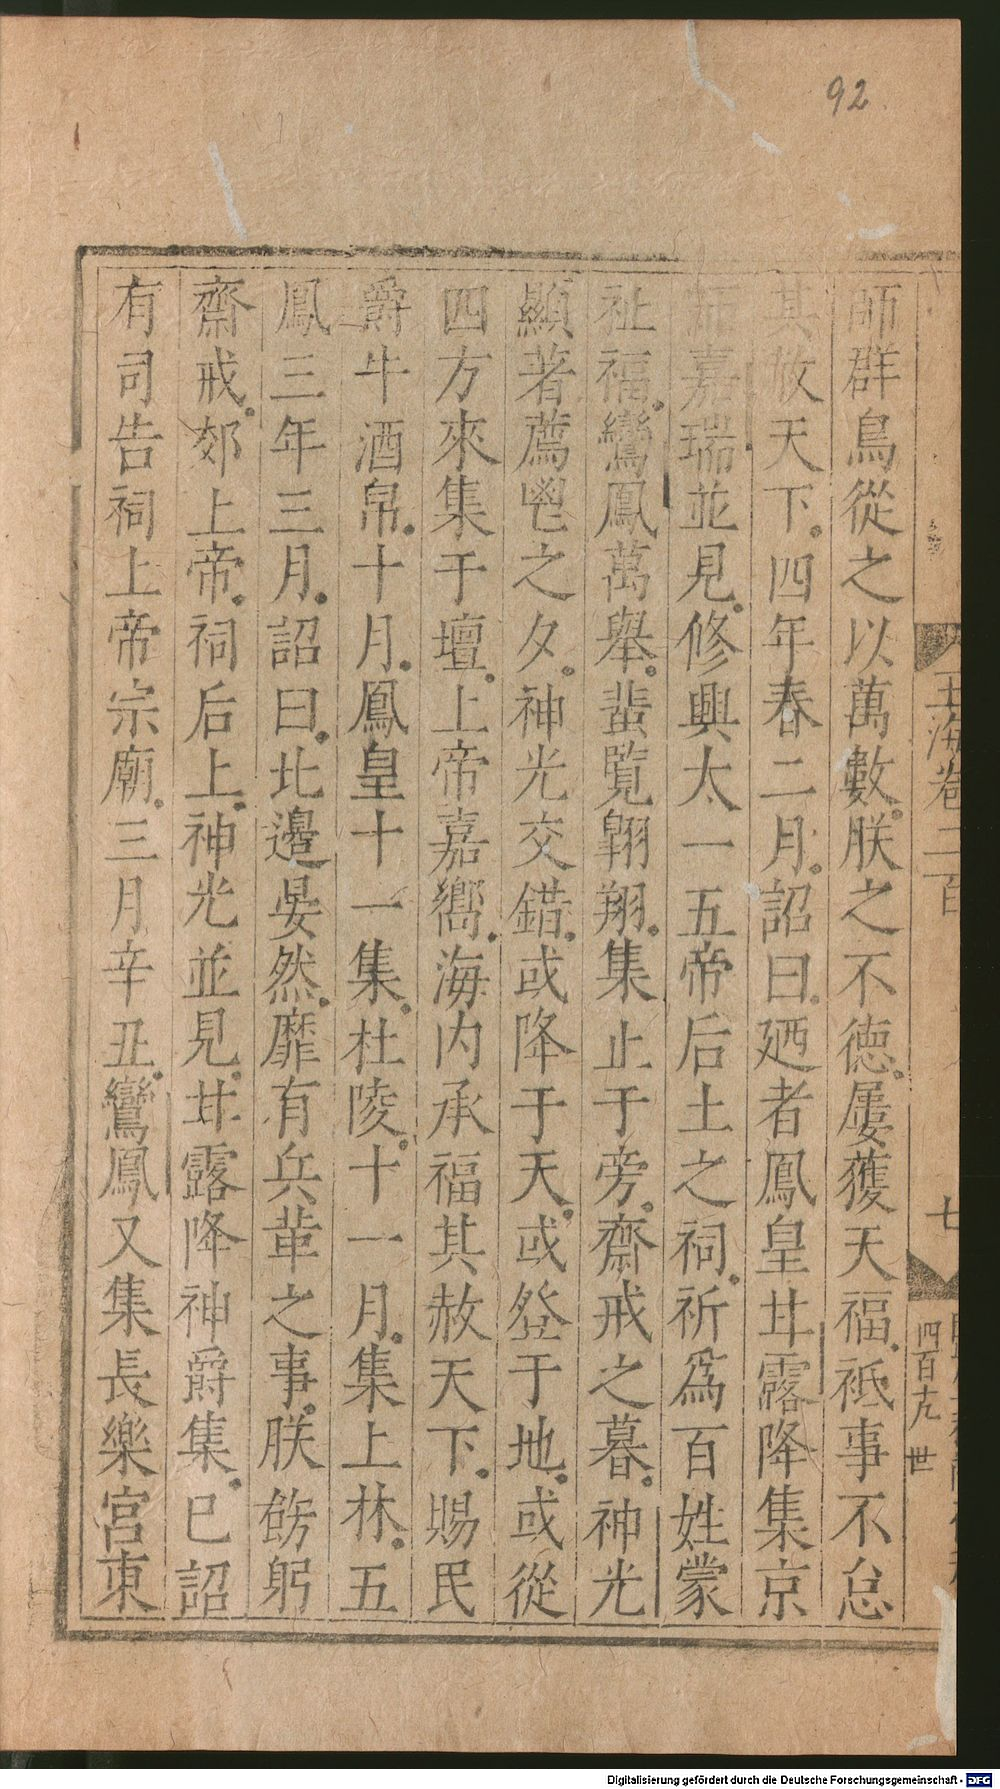 92
師群鳥從之以萬數朕之不德屢獲天福祗事不怠
其赦天下四年春二月詔曰廼者鳳皇甘露降集京
師嘉瑞並見修興太一五帝后土之祠祈爲百姓蒙
祉福鸞鳳萬舉蜚覽翱翔集止于旁齋戒之暮神光
顯著薦鬯之夕神光交錯或降于天或登于地或從
四方來集于壇上帝嘉嚮海内承福其赦天下賜民
爵牛酒帛十月鳳皇十一集杜陵十一月集上林五
鳳三年三月詔曰北邊晏然靡有兵革之事朕飭躬
齋戒郊上帝祠后土神光並見甘露降神爵集已詔
有司告祠上帝宗廟三月辛丑鸞鳳又集長樂宮東
玉海卷二百
七
四百九 世
Digitalisierung gefördert durch die Deutsche Forschungsgemeinschaft - DFG